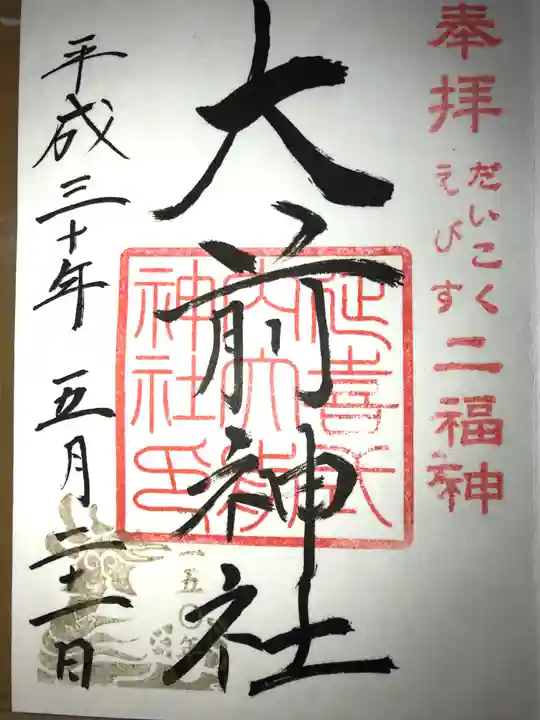 奉拝
だいこく
えびす
二福神
大前神社
延喜式
内大前
神社印
平成三十年五月二十一日
一五〇年